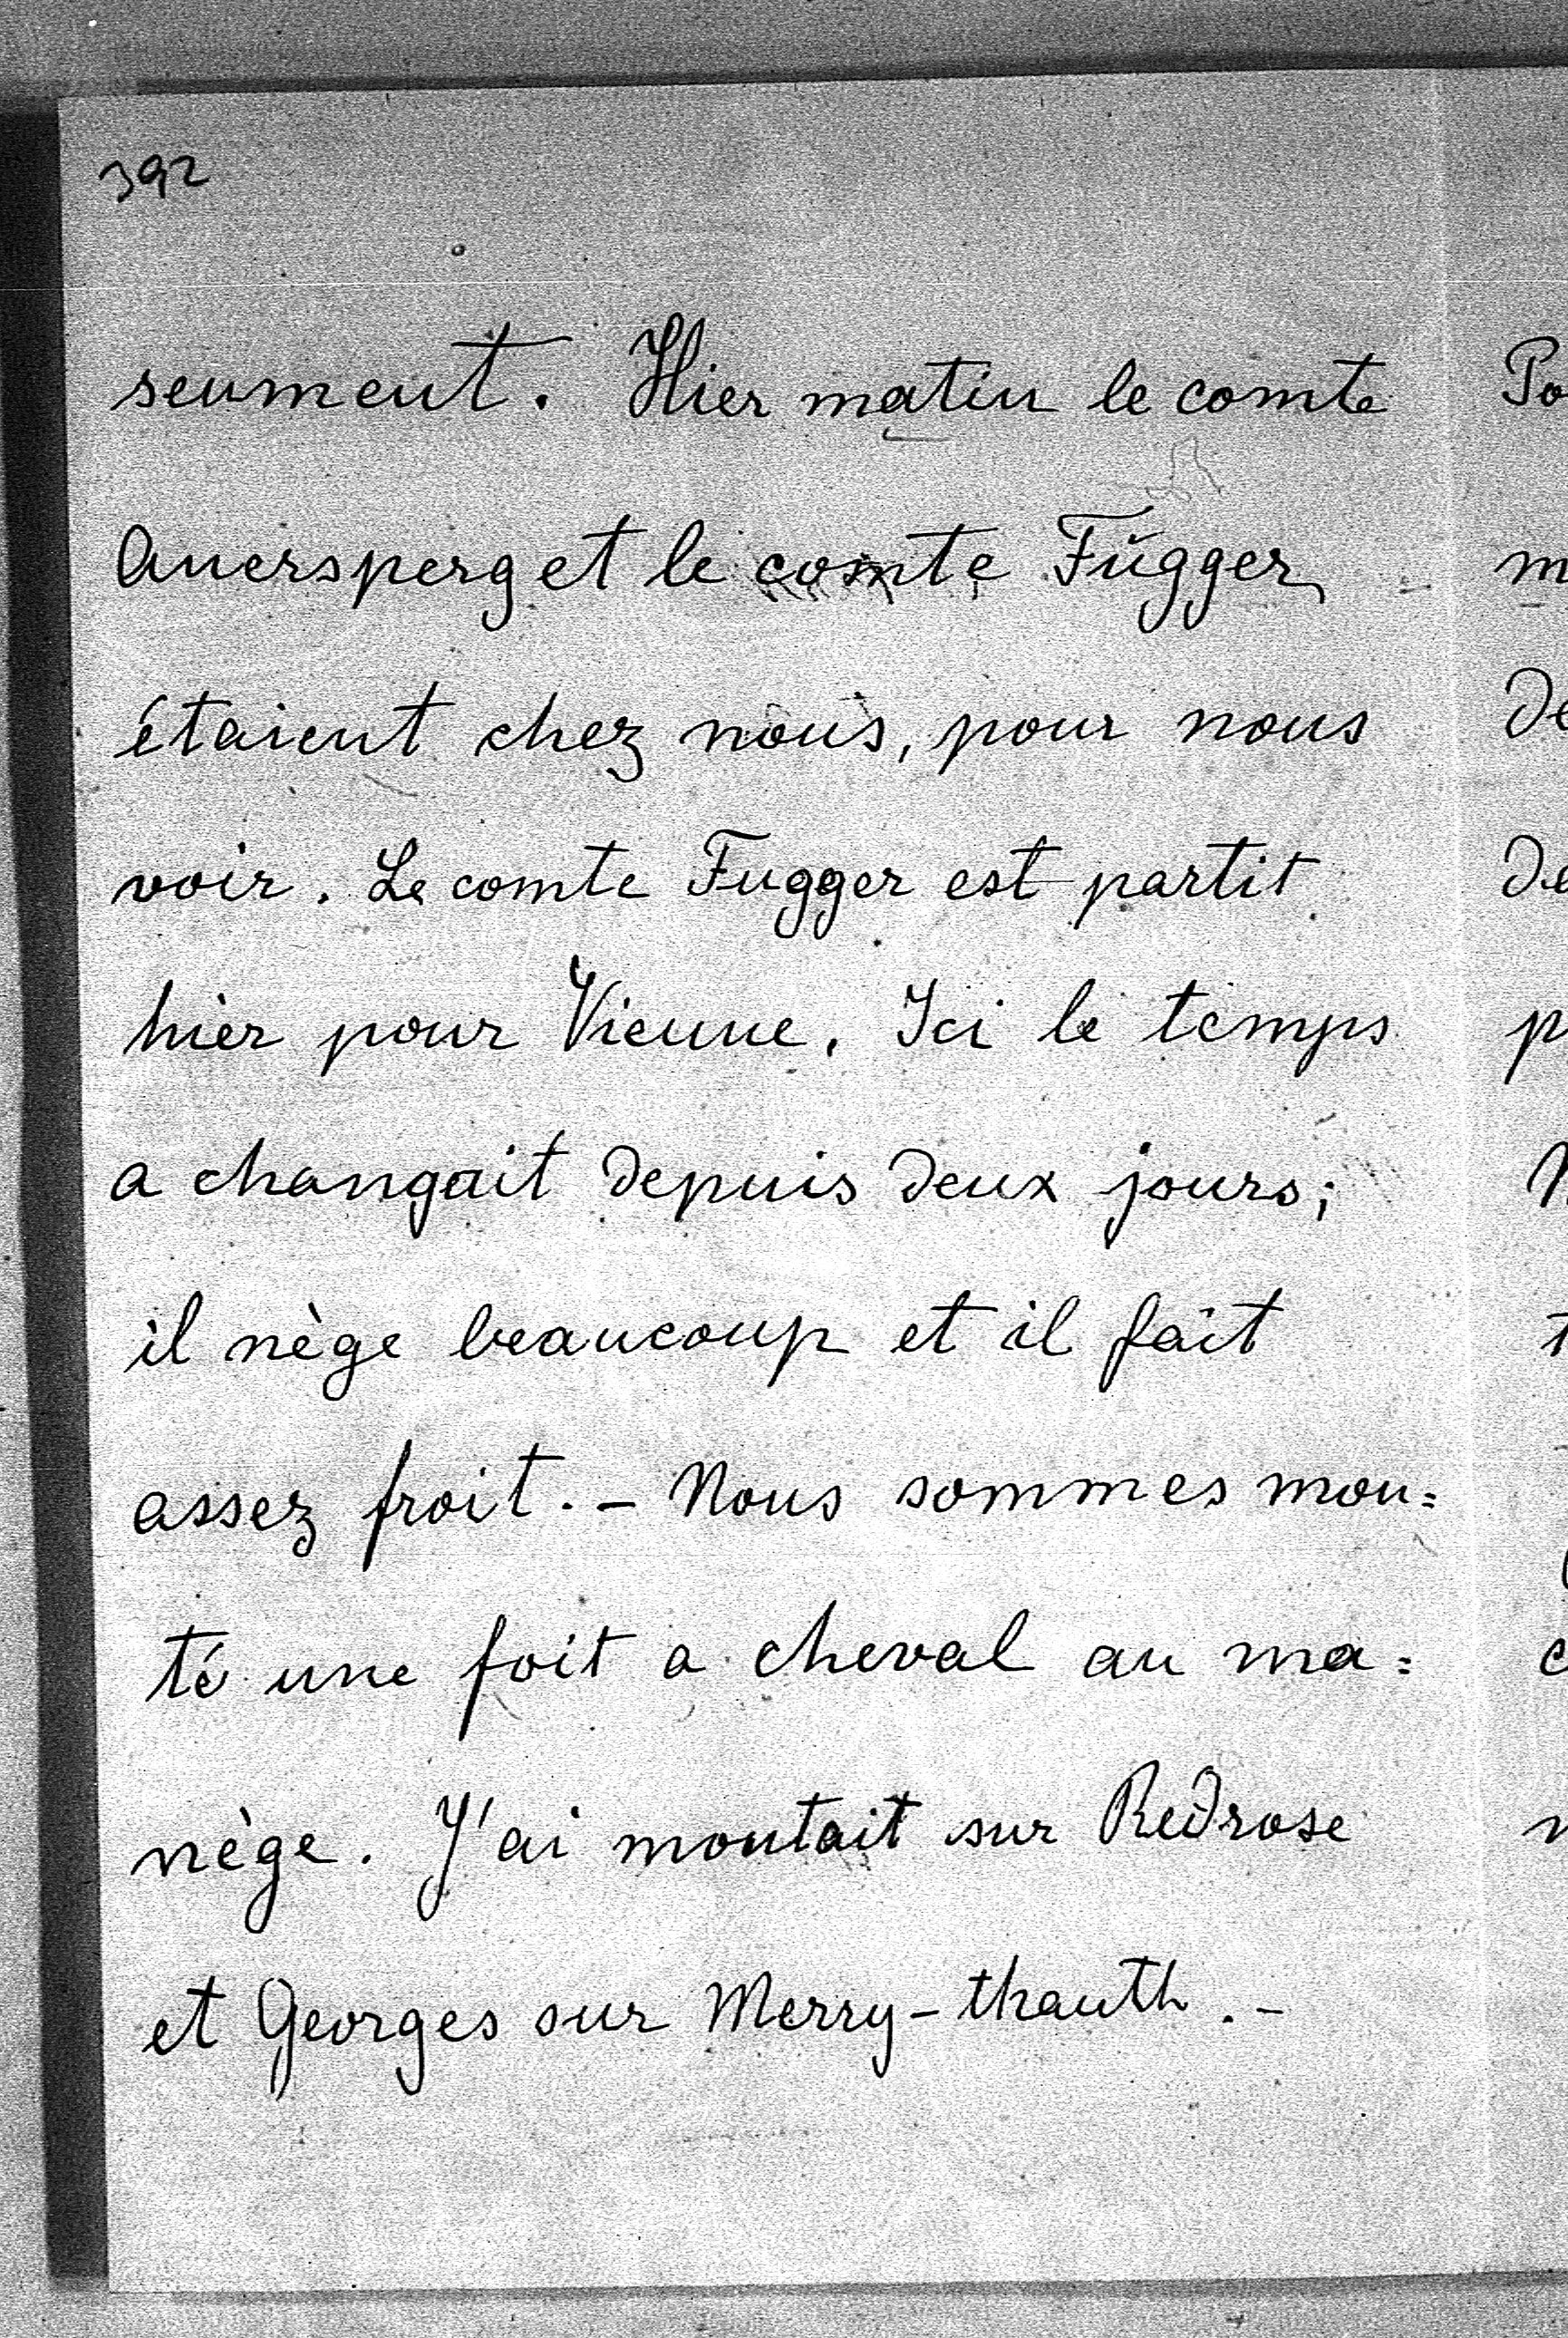 392
seument. Hier matin le comte
Auersperg et le comte Fŭgger
étaient chez nous, pour nous
voir. Le comte Fugger est partit
hier pour Vienne. Ici le temps
a changait depuis deux jours;
il nège beaucoup et il fait
assez froit. – Nous sommes mon=
té une foit a cheval au ma=
nège. J'ai montait sur Redrose
et Georges sur Merry-thauth. –